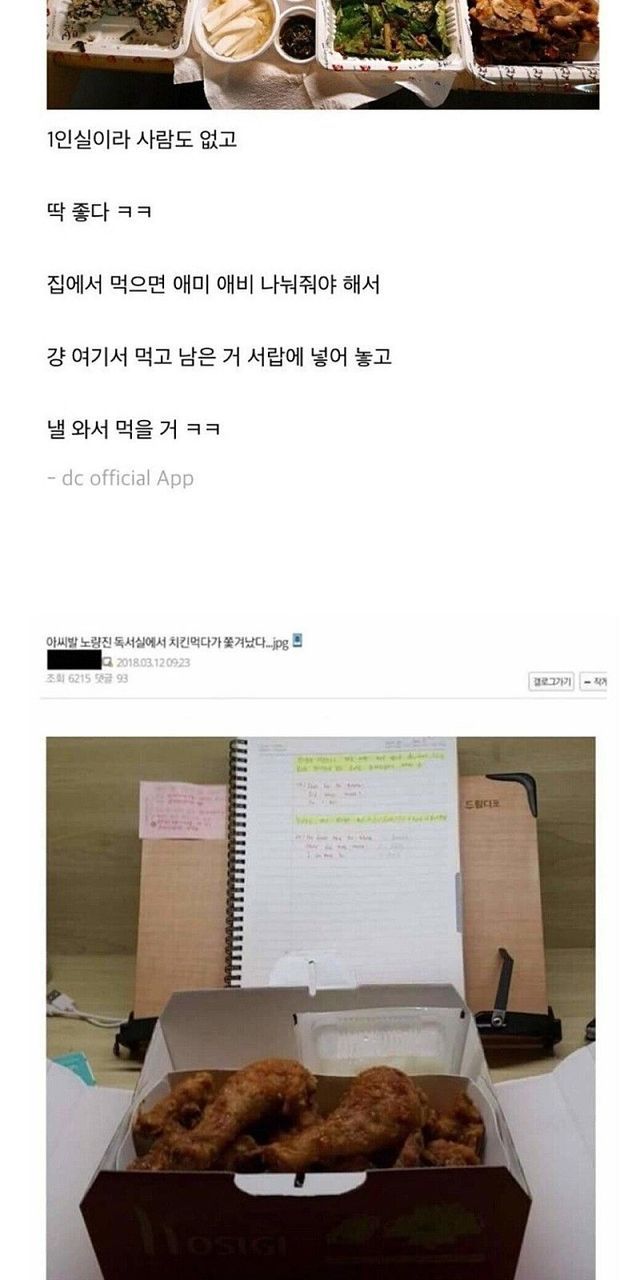 1인실이라 사람도 없고
딱 좋다 ㅋㅋ
집에서 먹으면 애미 애비 나눠줘야 해서
걍 여기서 먹고 남은 거 서랍에 넣어 놓고
낼 와서 먹을 거 ㅋㅋ
- dc official App
아씨발 노량진 독서실에서 치킨먹다가 쫓겨났다...jpg
2018.03.12 09:23
조회 6215 댓글 93
갤로그가기
드림디포
HOSIGI